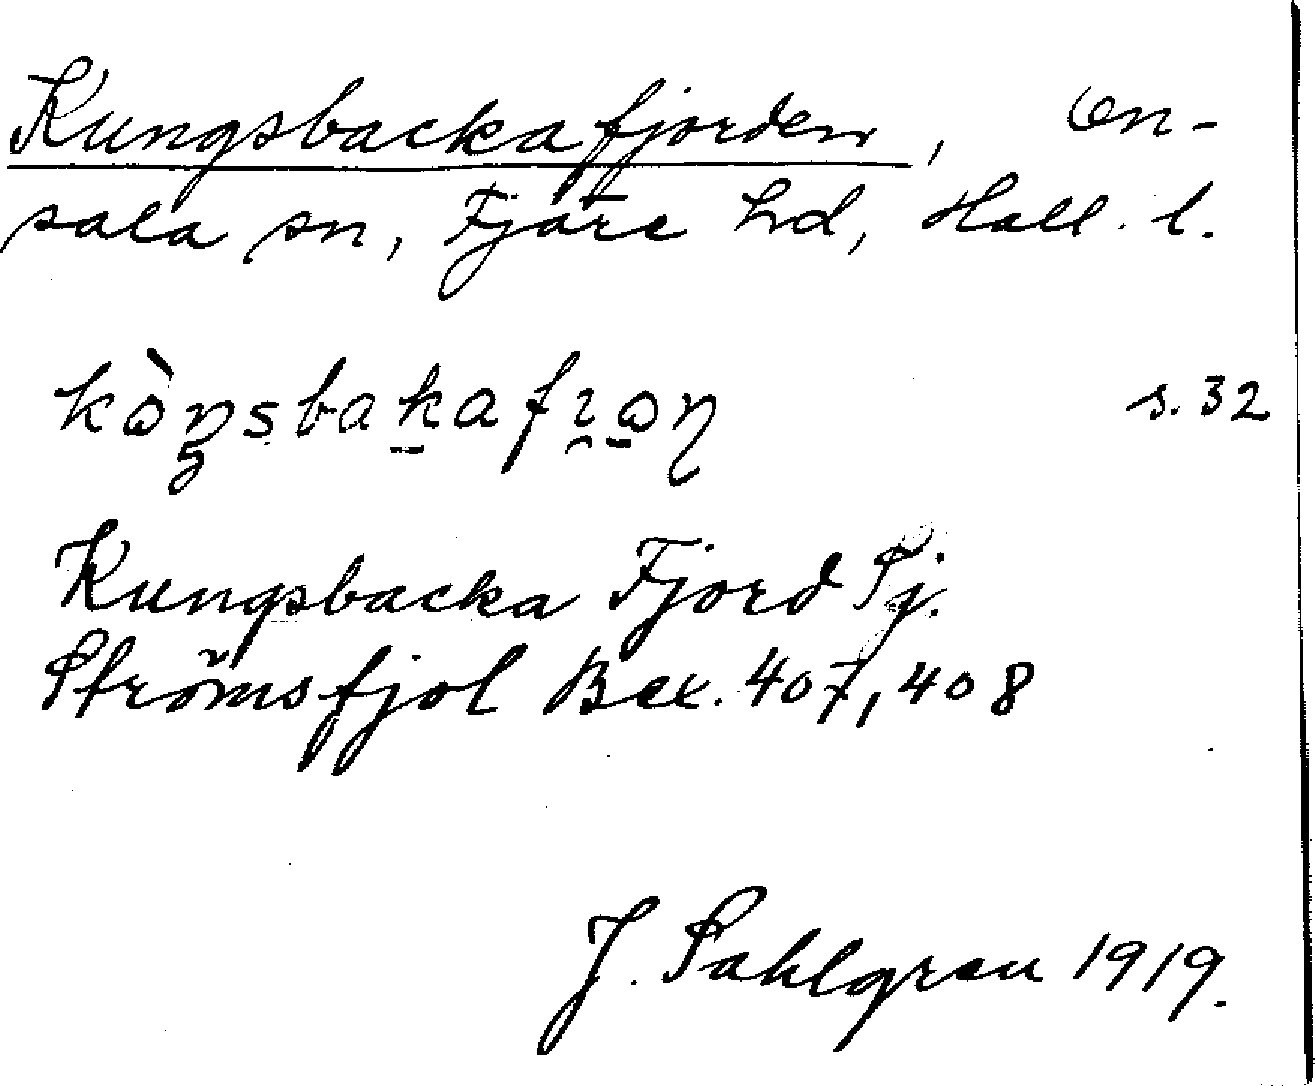 Kungsbackafjorden, On-
sala sn, Fjäre hd, Hall. l.
s. 32
Kungsbacka Fjord Sj.
Strömsfjol Bex. 407, 408
J. Sahlgren 1919.